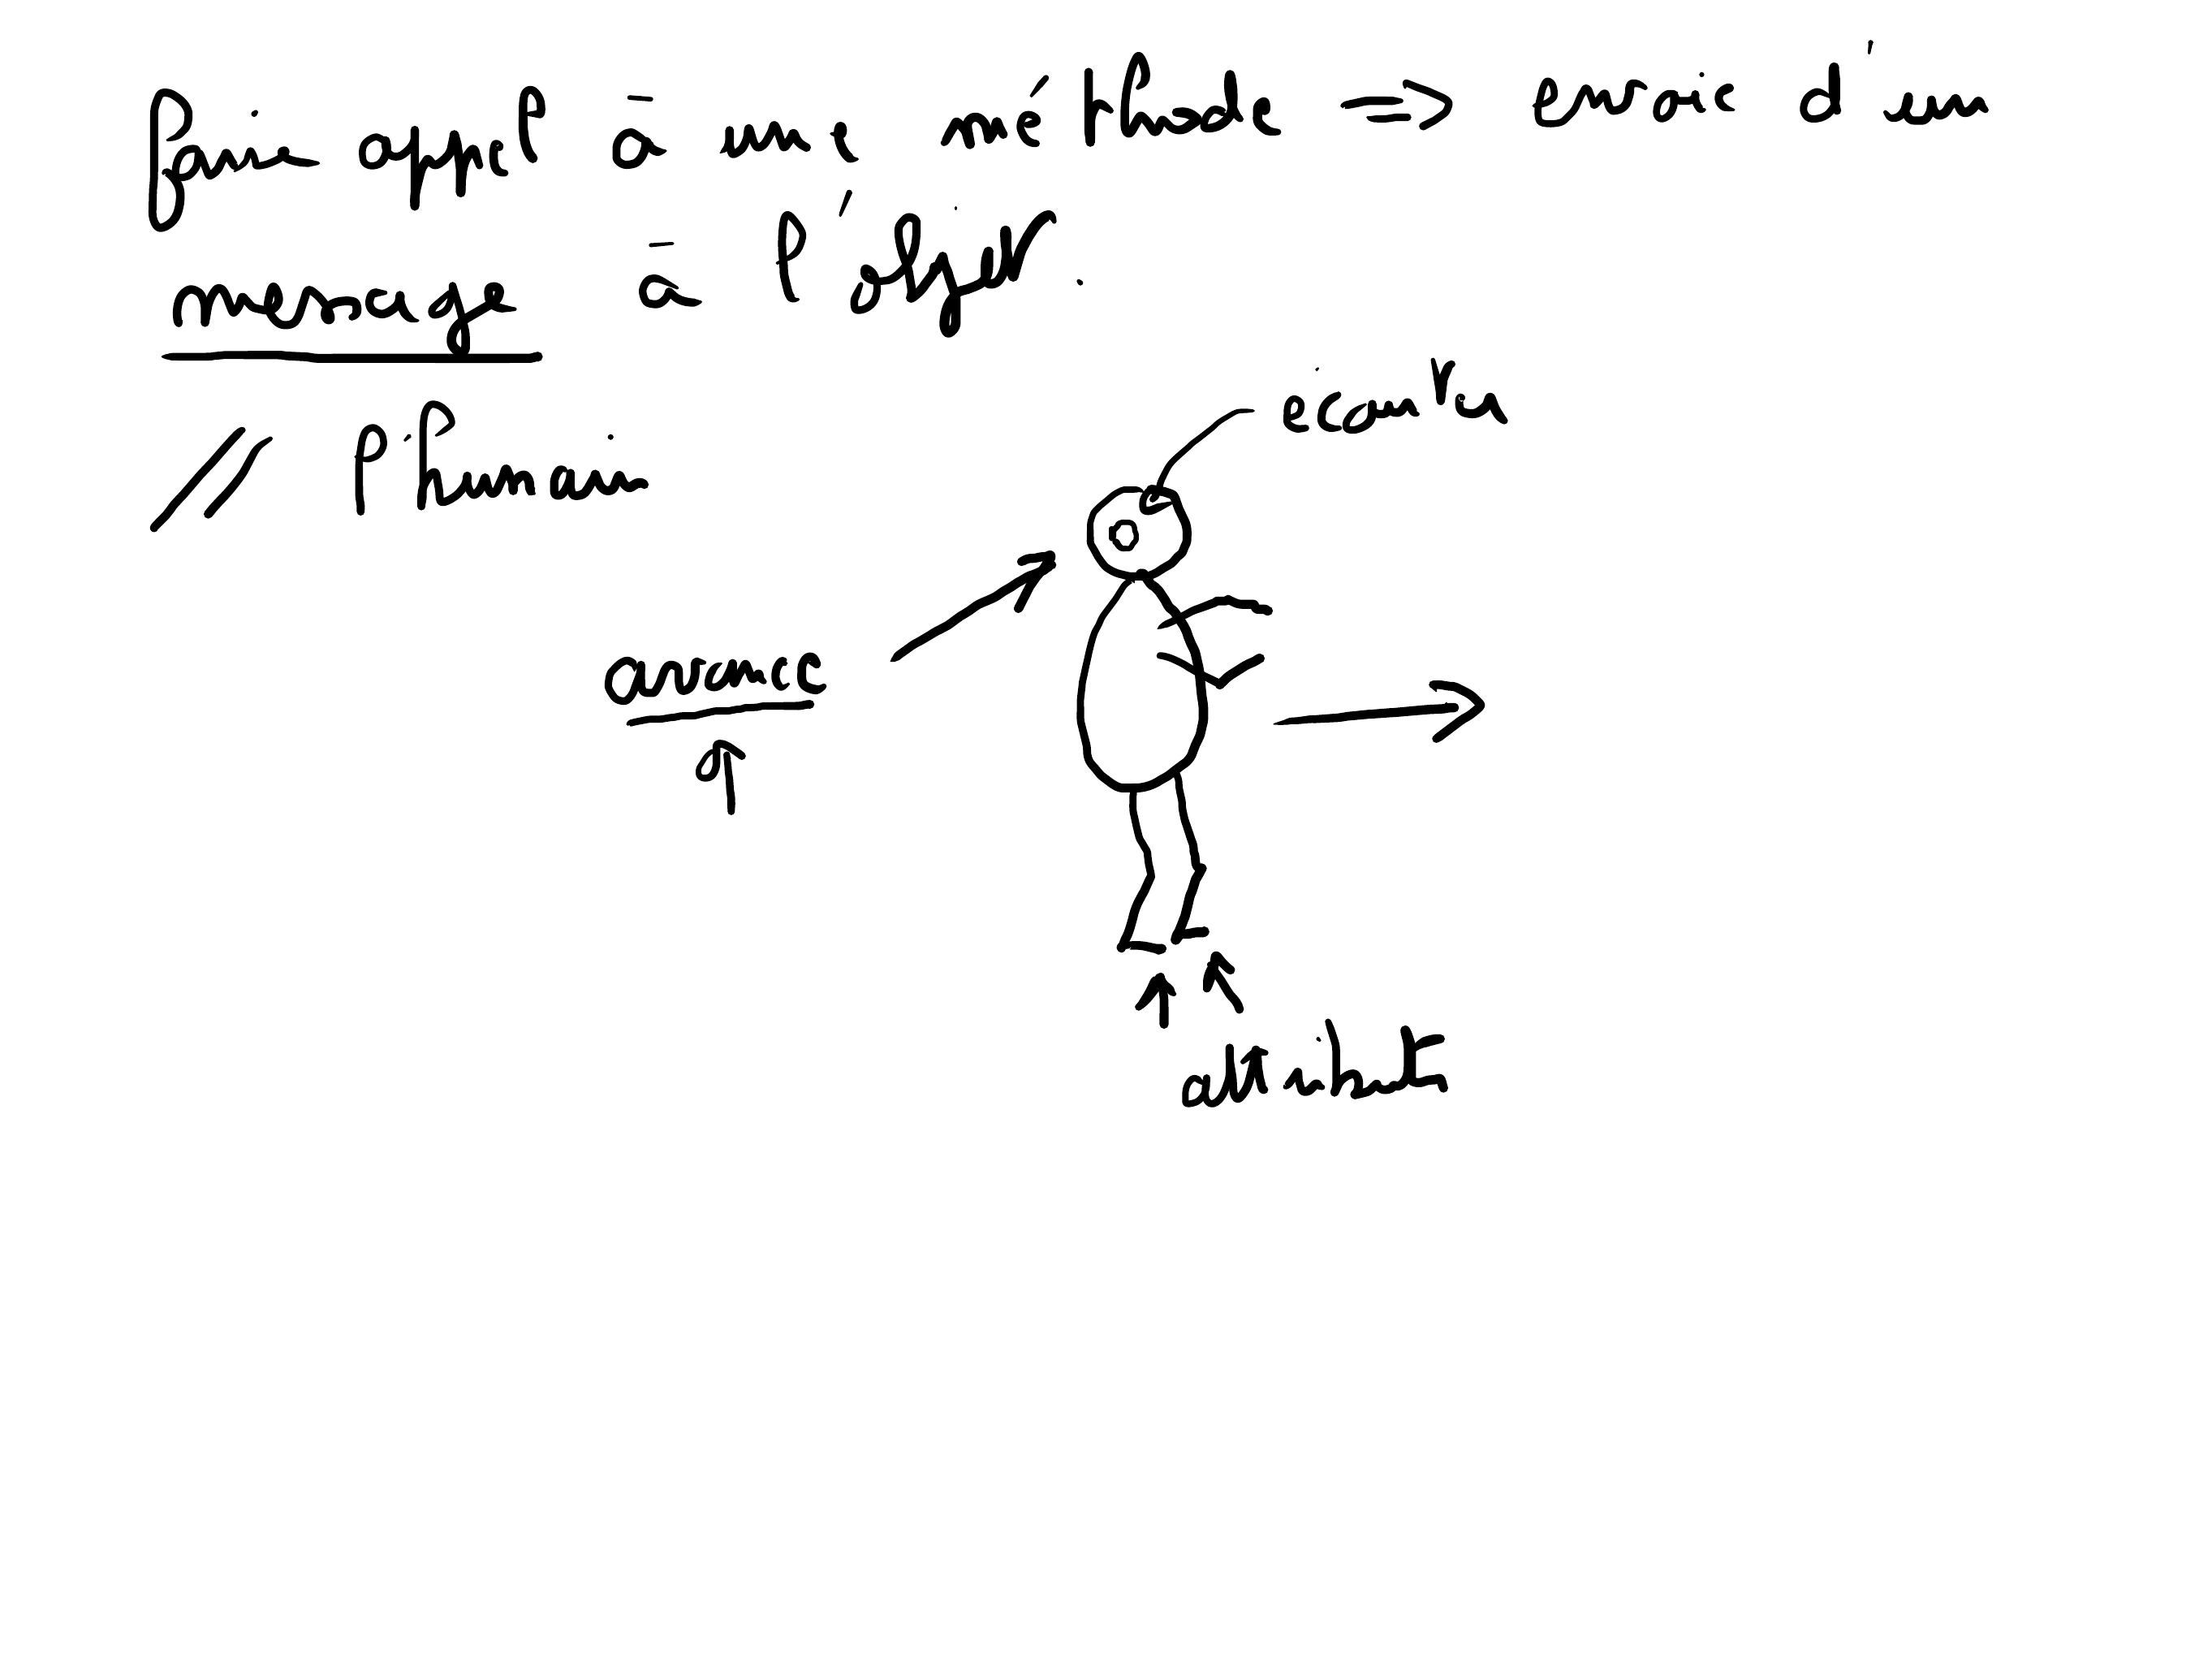 faire appel à une méthode => envoie d'un
message à l'objet.
// l'humain
écouter
avance
attribut